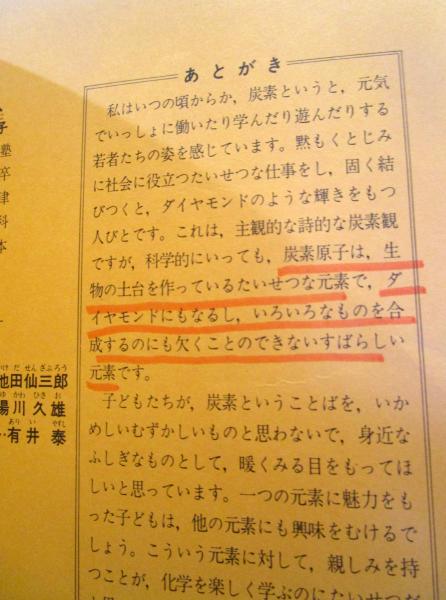 あとがき
私はいつの頃からか，炭素というと，元気
でいっしょに働いたり学んだり遊んだりする
若者たちの姿を感じています。黙もくとじみ
に社会に役立つたいせつな仕事をし，固く結
びつくと，ダイヤモンドのような輝きをもつ
人びとです。これは，主観的な詩的な炭素観
ですが，科学的にいっても，炭素原子は，生
物の土台を作っているたいせつな元素で，ダ
イヤモンドにもなるし，いろいろなものを合
成するのにも欠くことのできないすばらしい
元素です。
子どもたちが，炭素ということばを，いか
めしいむずかしいものと思わないで，身近な
ふしぎなものとして，暖くみる目をもってほ
しいと思っています。一つの元素に魅力をも
った子どもは，他の元素にも興味をむけるで
しょう。こういう元素に対して，親しみを持
つことが，化学を楽しく学ぶのにたいせつだ
子
塾
卒
律
科
本
いけ だ せんざぶろう
池田仙三郎
ゆ かわ ひさ お
湯川久雄
あり い やすし
有井 泰